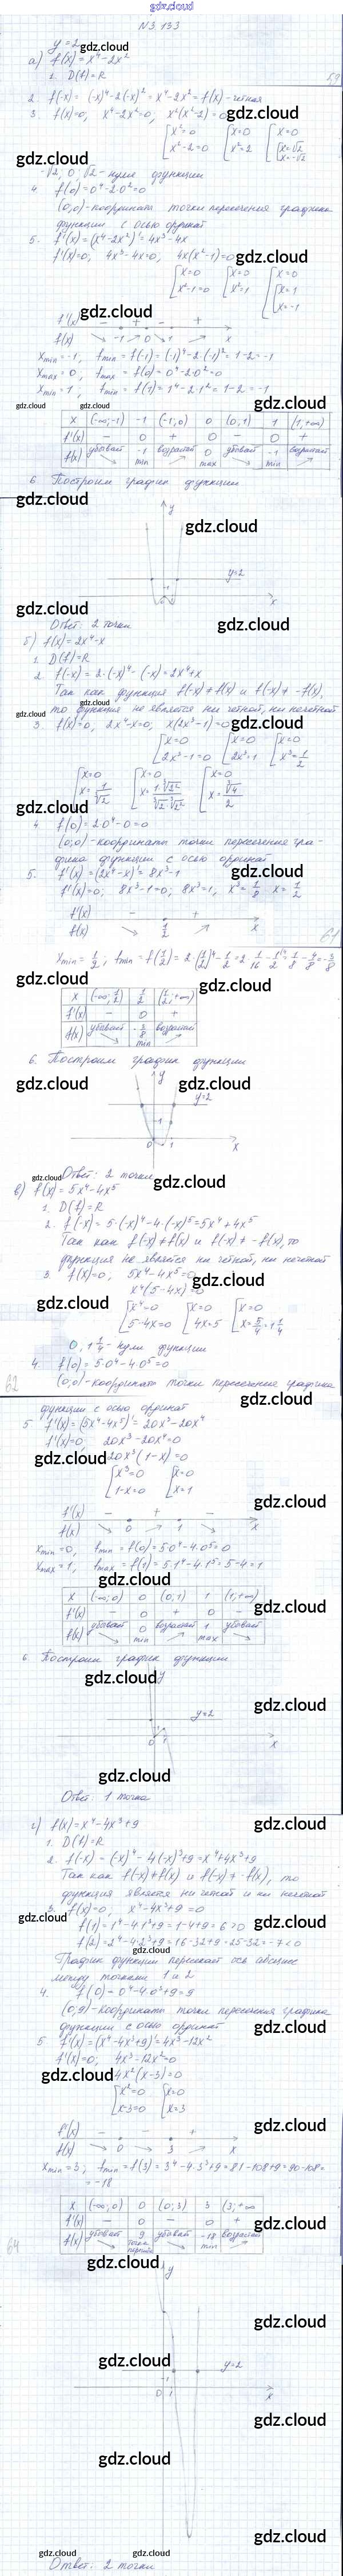 gdz.cloud
N3.133
y=2
а) f(x)=x⁴-2x²
1. D(f)=R
59
2. f(-x)=(-x)⁴-2(-x)²=x⁴-2x²=f(x)-чётная
3. f(x)=0, x⁴-2x²=0, x²(x²-2)=0
[x²=0 [x=0 [x=0
x²-2=0 x²=2 [x=√2 x=-√2
-√2, 0, √2-нули функции
4. f(0)=0⁴-2·0²=0
(0;0)-координата точки пересечения графика
функции с осью ординат
5. f'(x)=(x⁴-2x²)'=4x³-4x
f'(x)=0, 4x³-4x=0, 4x(x²-1)=0
[x=0 [x=0 [x=0
x²-1=0 x²=1 [x=1 x=-1
f'(x) - + - +
f(x) -1 0 1 x
xmin=-1, fmin=f(-1)=(-1)⁴-2·(-1)²=1-2=-1
xmax=0, fmax=f(0)=0⁴-2·0²=0
xmin=1, fmin=f(1)=1⁴-2·1²=1-2=-1
x (-∞;-1) -1 (-1;0) 0 (0;1) 1 (1;+∞)
f'(x) - 0 + 0 - 0 +
f(x) убывает -1 min возрастает 0 max убывает -1 min возрастает
6. Построим график функции
y
y=2
x
Ответ: 2 точки
б) f(x)=2x⁴-x
1. D(f)=R
2. f(-x)=2·(-x)⁴-(-x)=2x⁴+x
Так как функция f(-x)≠f(x) и f(-x)≠-f(x),
то функция не является ни чётной, ни нечётной
3. f(x)=0, 2x⁴-x=0, x(2x³-1)=0
[x=0 [x=0 [x=0
2x³-1=0 2x³=1 x³=1/2
[x=0 [x=0 [x=0
x=1/∛2 x=1·∛2²/∛2·∛2² x=∛4/2
4. f(0)=2·0⁴-0=0
(0;0)-координаты точки пересечения гра-
фика функции с осью ординат
5. f'(x)=(2x⁴-x)'=8x³-1
f'(x)=0, 8x³-1=0, 8x³=1, x³=1/8 x=1/2
f'(x) - +
f(x) 1/2 x
61
xmin=1/2, fmin=f(1/2)=2·(1/2)⁴-1/2=2·1/16-1/2=1/8-4/8=-3/8
x (-∞;1/2) 1/2 (1/2;+∞)
f'(x) - 0 +
f(x) убывает -3/8 min возрастает
6. Построим график функции
y
y=2
0 1 x
Ответ: 2 точки
в) f(x)=5x⁴-4x⁵
1. D(f)=R
2. f(-x)=5·(-x)⁴-4·(-x)⁵=5x⁴+4x⁵
Так как f(-x)≠f(x) и f(-x)≠-f(x), то
функция не является ни чётной, ни нечётной
3. f(x)=0, 5x⁴-4x⁵=0
x⁴(5-4x)=0
[x⁴=0 [x=0 [x=0
5-4x=0 4x=5 x=5/4=1 1/4
0, 1 1/4-нули функции
4. f(0)=5·0⁴-4·0⁵=0
(0;0)-координата точки пересечения графика
62
функции с осью ординат
5 f'(x)=(5x⁴-4x⁵)'=20x³-20x⁴
f'(x)=0, 20x³-20x⁴=0
20x³(1-x)=0
[x³=0 [x=0
1-x=0 x=1
f'(x) - + -
f(x) 0 1 x
xmin=0, fmin=f(0)=5·0⁴-4·0⁵=0
xmax=1, fmax=f(1)=5·1⁴-4·1⁵=5-4=1
x (-∞;0) 0 (0;1) 1 (1;+∞)
f'(x) - 0 + 0 -
f(x) убывает 0 min возрастает 1 max убывает
6 Построим график функции
y
y=2
0 1 x
Ответ 1 точка
г) f(x)=x⁴-4x³+9
1. D(f)=R
2. f(-x)=(-x)⁴-4(-x)³+9=x⁴+4x³+9
Так как f(-x)≠f(x) и f(-x)≠-f(x), то
функция является ни чётной и ни нечётной
3. f(x)=0, x⁴-4x³+9=0
f(1)=1⁴-4·1³+9=1-4+9=6>0
f(2)=2⁴-4·2³+9=16-32+9=25-32=-7<0
График функции пересекает ось абсцисс
между точками 1 и 2
4. f(0)=0⁴-4·0³+9=9
(0;9)-координата точки пересечения графика
функции с осью ординат
5 f'(x)=(x⁴-4x³+9)'=4x³-12x²
f'(x)=0, 4x³-12x²=0
4x²(x-3)=0
[x²=0 [x=0
x-3=0 x=3
f'(x) - - +
f(x) 0 3 x
xmin=3, fmin=f(3)=3⁴-4·3³+9=81-108+9=90-108=
=-18
x (-∞;0) 0 (0;3) 3 (3;+∞
f'(x) - 0 - 0 +
f(x) убывает 9 точка перегиба убывает -18 min возрастает
64
y
y=2
0 1 x
Ответ: 2 точки